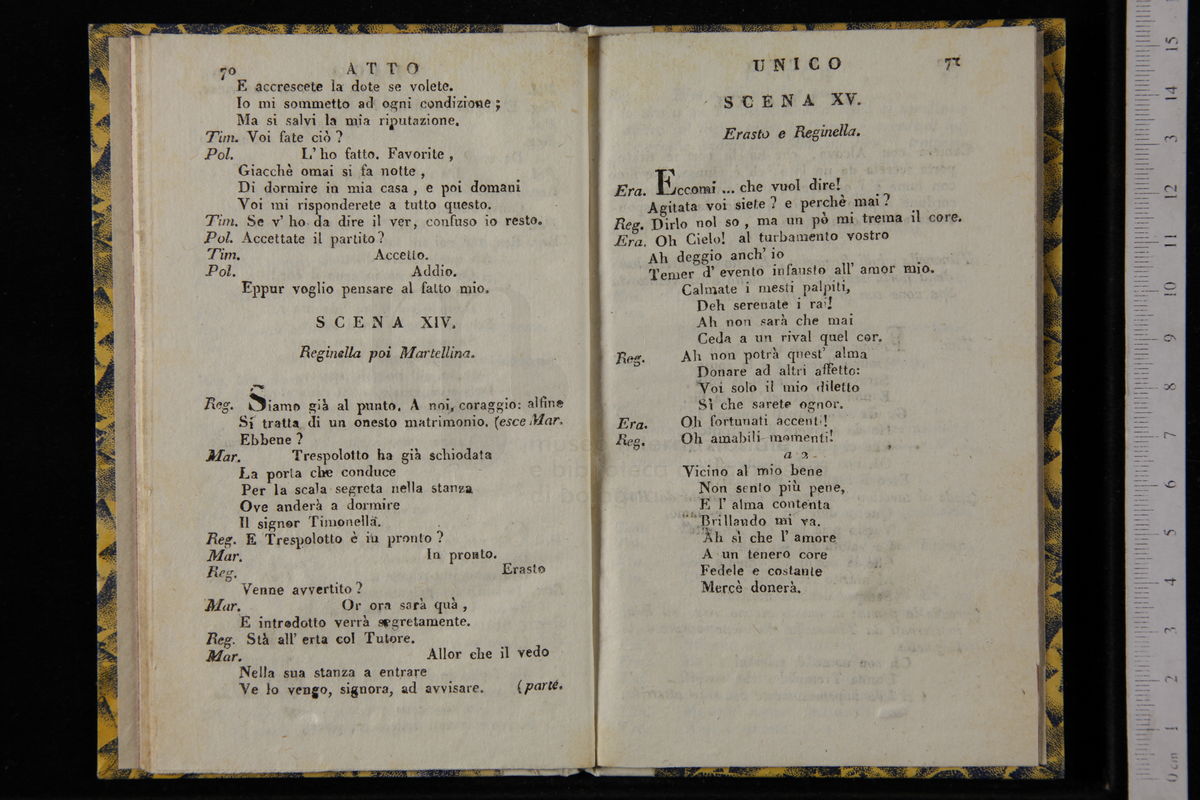 70 ATTO
E accrescete la dote se volete.
Io mi sommetto ad ogni condizione;
Ma si salvi la mia riputazione.
Tim. Voi fate ciò?
Pol. L'ho fatto. Favorite,
Giacchè omai si fa notte,
Di dormire in mia casa, e poi domani
Voi mi risponderete a tutto questo.
Tim. Se v'ho da dire il ver, confuso io resto.
Pol. Accettate il partito?
Tim. Accetto.
Pol. Addio.
Eppur voglio pensare al fatto mio.
SCENA XIV.
Reginella poi Martellina.
Reg. Siamo già al punto. A noi, coraggio: alfine
Si tratta di un onesto matrimonio. (esce Mar.
Ebbene?
Mar. Trespolotto ha già schiodata
La porta che conduce
Per la scala segreta nella stanza
Ove anderà a dormire
Il signor Timonella.
Reg. E Trespolotto è in pronto?
Mar. In pronto.
Reg. Erasto
Venne avvertito?
Mar. Or ora sarà quà,
E introdotto verrà segretamente.
Reg. Stà all'erta col Tutore.
Mar. Allor che il vedo
Nella sua stanza a entrare
Ve lo vengo, signora, ad avvisare. (parte.
UNICO 71
SCENA XV.
Erasto e Reginella.
Era. Eccomi ... che vuol dire!
Agitata voi siete? e perchè mai?
Reg. Dirlo nol so, ma un pò mi trema il core.
Era. Oh Cielo! al turbamento vostro
Ah deggio anch'io
Temer d'evento infausto all'amor mio.
Calmate i mesti palpiti,
Deh serenate i rai!
Ah non sarà che mai
Ceda a un rival quel cor.
Reg. Ah non potrà quest'alma
Donare ad altri affetto:
Voi solo il mio diletto
Sì che sarete ognor.
Era. Oh fortunati accenti!
Reg. Oh amabili momenti!
a 2
Vicino al mio bene
Non sento più pene,
E l'alma contenta
Brillando mi va.
Ah sì che l'amore
A un tenero core
Fedele e costante
Mercè donerà.
0 cm 1 2 3 4 5 6 7 8 9 10 11 12 13 14 15